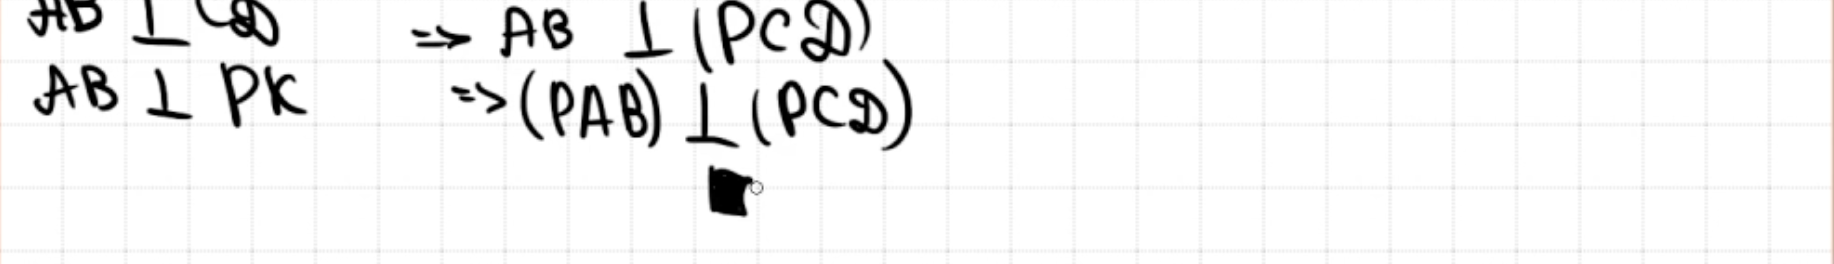 AB ⊥ CD => AB ⊥ (PCD)
AB ⊥ PK => (PAB) ⊥ (PCD)